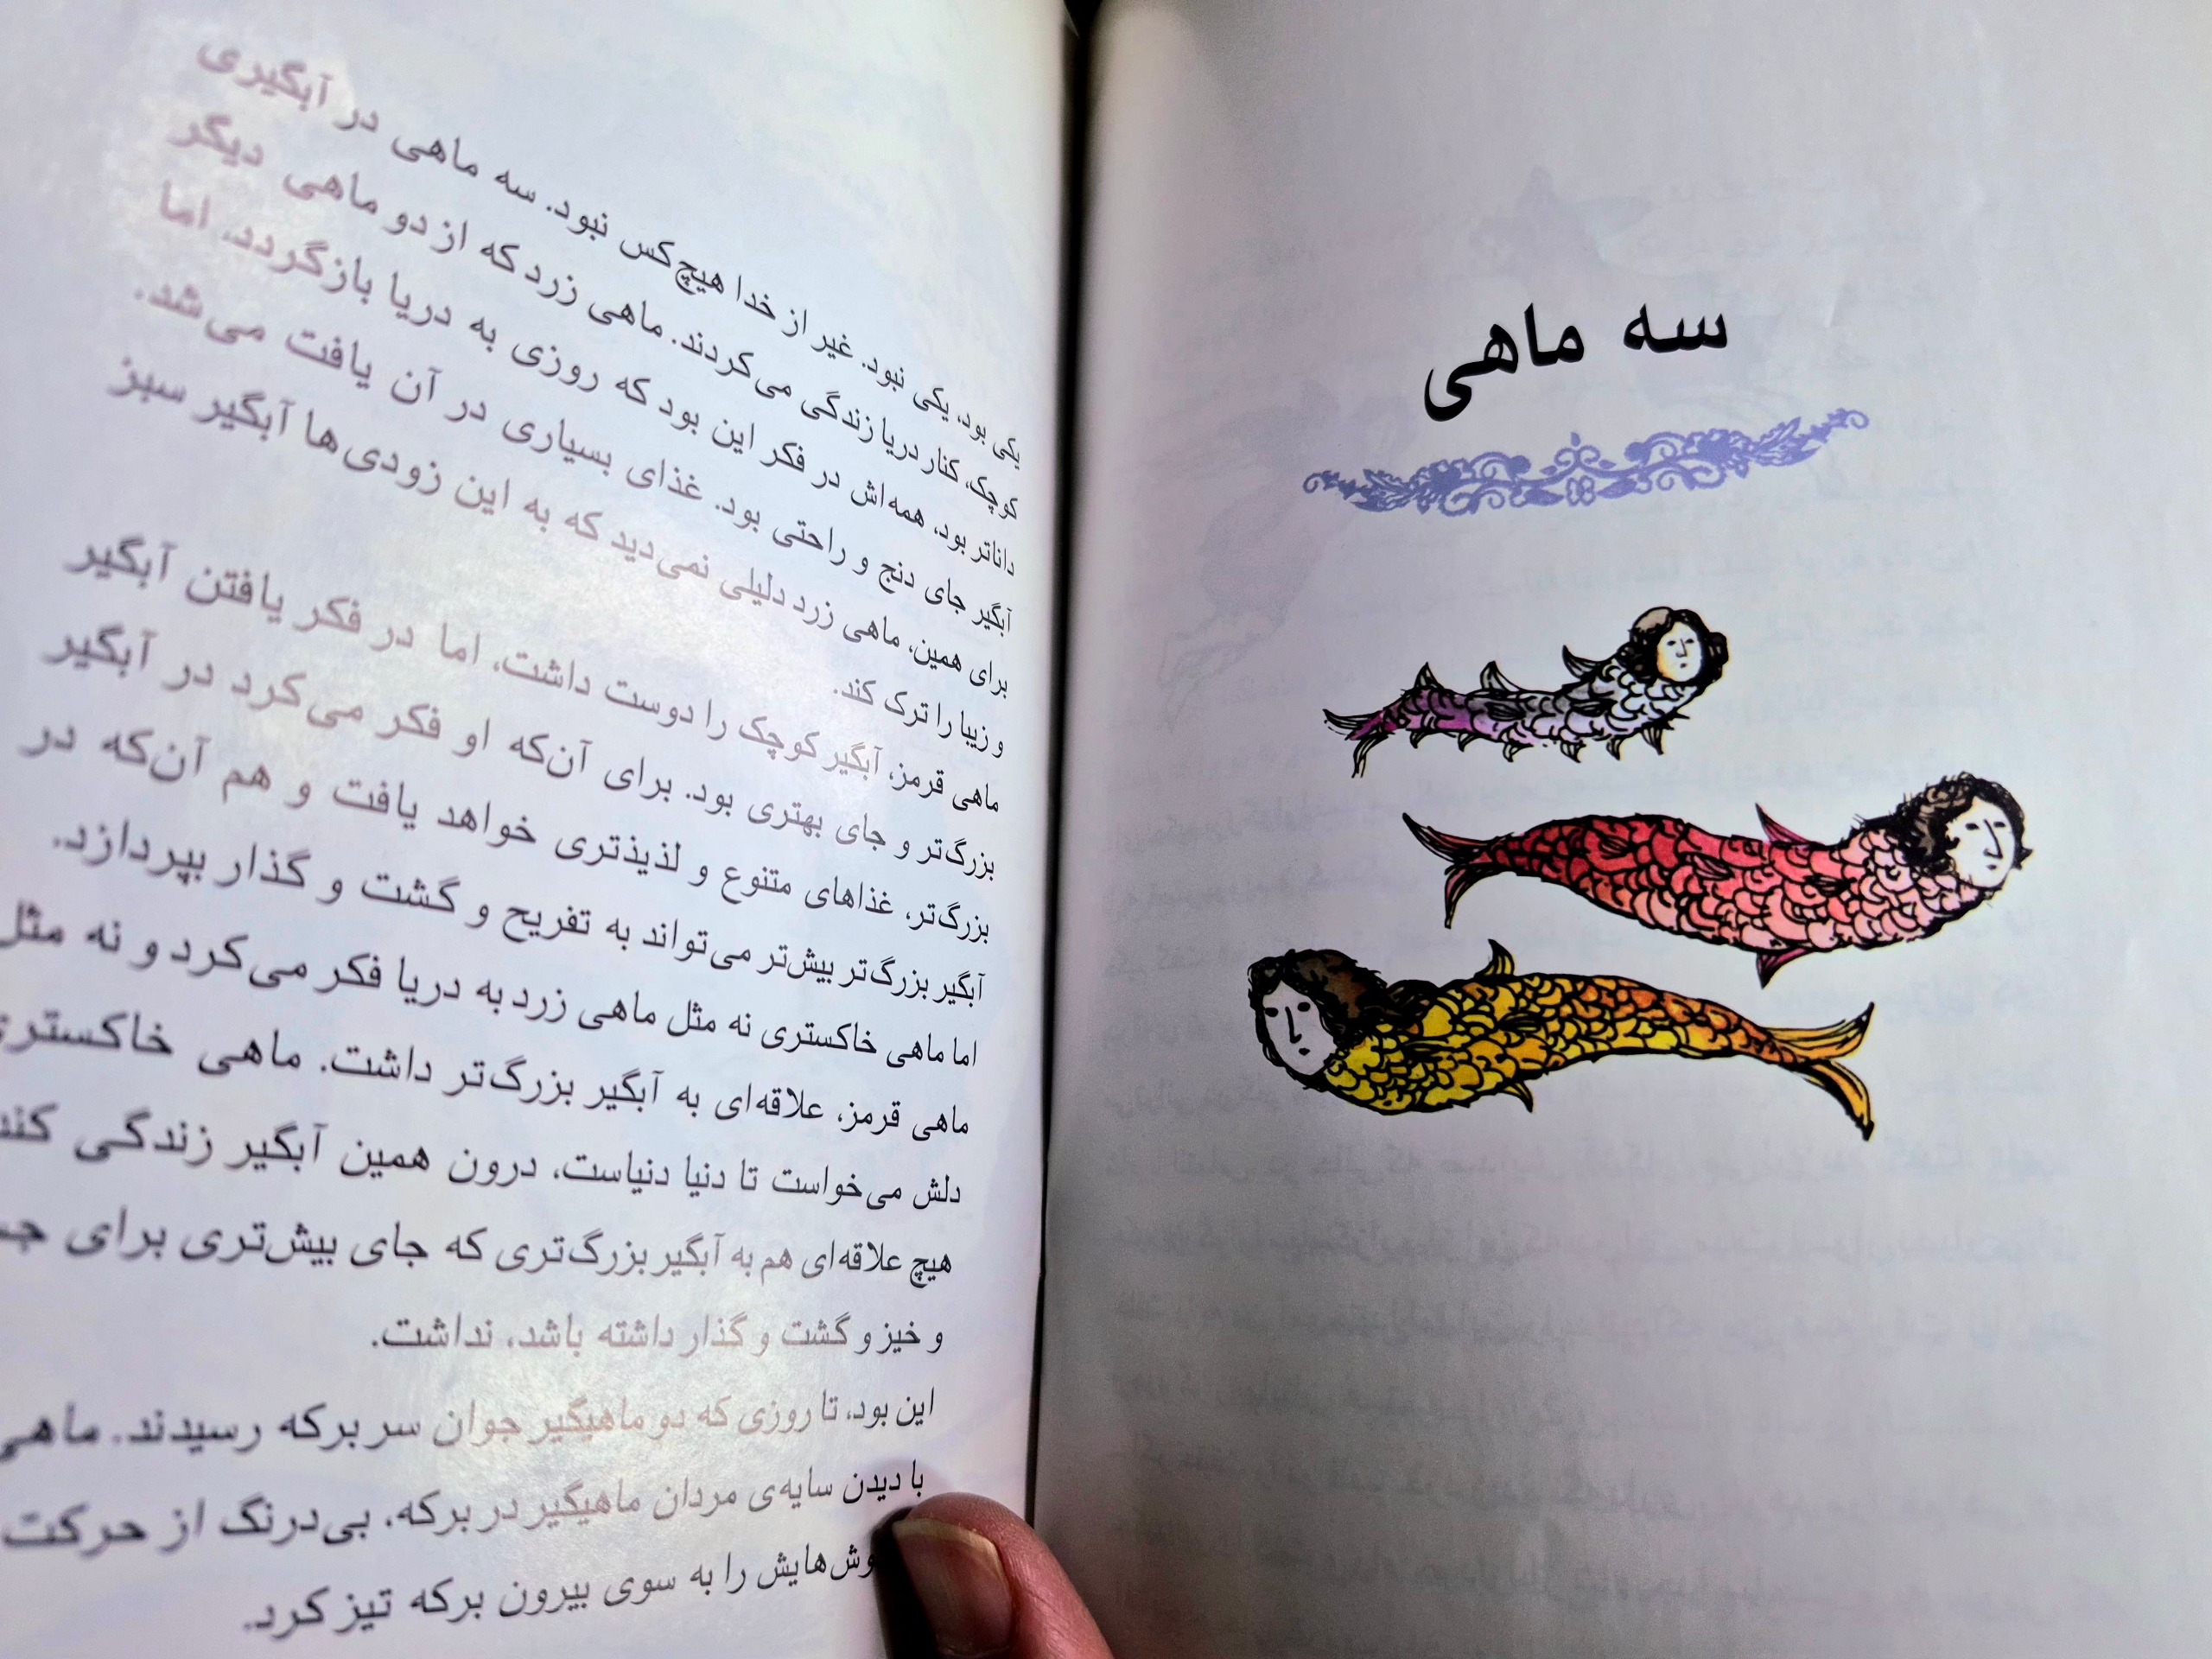 سه ماهی
یکی بود، یکی نبود. غیر از خدا هیچ‌کس نبود. سه ماهی در آبگیری
کوچک، کنار دریا زندگی می‌کردند. ماهی زرد که از دو ماهی دیگر
داناتر بود، همه‌اش در فکر این بود که روزی به دریا بازگردد. اما
آبگیر جای دنج و راحتی بود. غذای بسیاری در آن یافت می‌شد.
برای همین، ماهی زرد دلیلی نمی‌دید که به این زودی‌ها آبگیر سبز
و زیبا را ترک کند.
ماهی قرمز، آبگیر کوچک را دوست داشت، اما در فکر یافتن آبگیر
بزرگ‌تر و جای بهتری بود. برای آن‌که او فکر می‌کرد در آبگیر
بزرگ‌تر، غذاهای متنوع و لذیذتری خواهد یافت و هم آن‌که در
آبگیر بزرگ‌تر بیش‌تر می‌تواند به تفریح و گشت و گذار بپردازد.
اما ماهی خاکستری نه مثل ماهی زرد به دریا فکر می‌کرد و نه مثل
ماهی قرمز، علاقه‌ای به آبگیر بزرگ‌تر داشت. ماهی خاکستری
دلش می‌خواست تا دنیا دنیاست، درون همین آبگیر زندگی کند
هیچ علاقه‌ای هم به آبگیر بزرگ‌تری که جای بیش‌تری برای
و خیز و گشت و گذار داشته باشد، نداشت.
این بود، تا روزی که دو ماهیگیر جوان سر برکه رسیدند. ماهی
با دیدن سایه‌ی مردان ماهیگیر در برکه، بی‌درنگ از حرکت
را به سوی بیرون برکه تیز کرد.